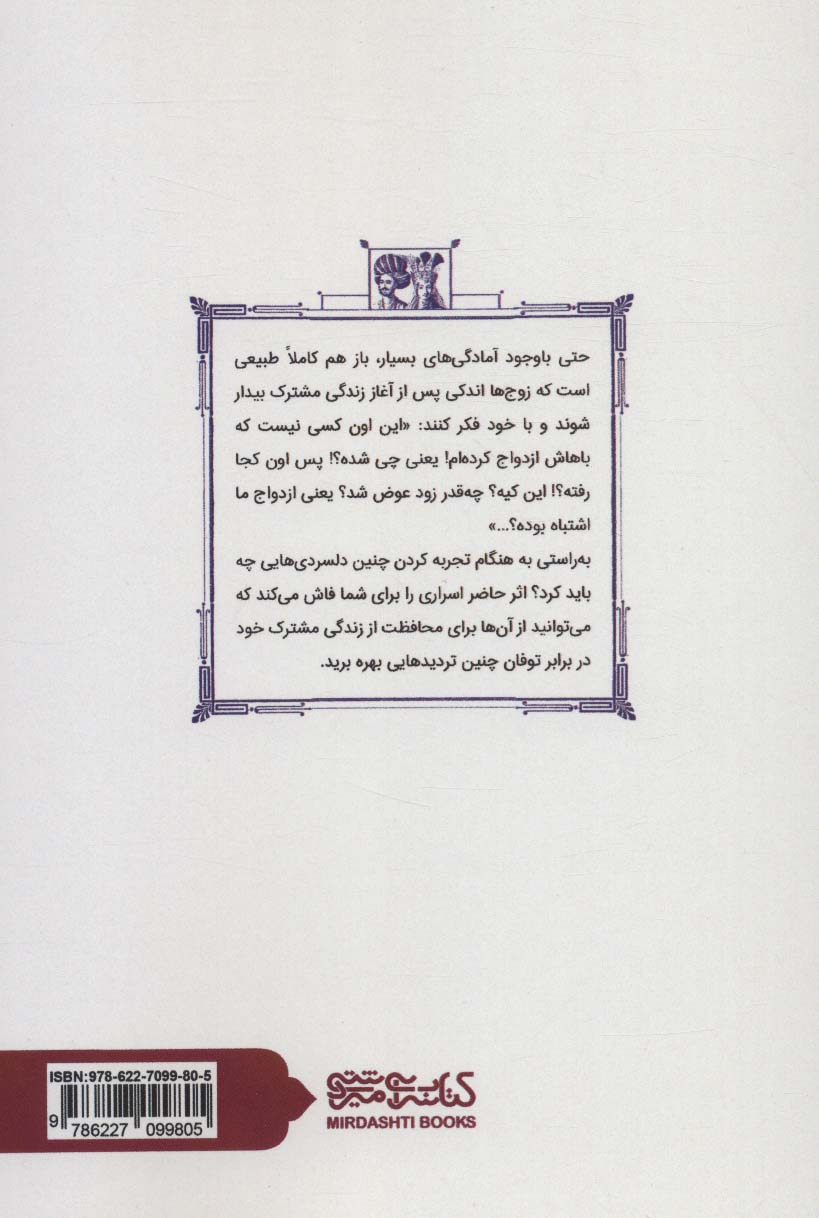 حتی باوجود آمادگی‌های بسیار، باز هم کاملاً طبیعی
است که زوج‌ها اندکی پس از آغاز زندگی مشترک بیدار
شوند و با خود فکر کنند: «این اون کسی نیست که
باهاش ازدواج کرده‌ام! یعنی چی شده؟! پس اون کجا
رفته؟! این کیه؟ چه‌قدر زود عوض شد؟ یعنی ازدواج ما
اشتباه بوده؟...»
به‌راستی به هنگام تجربه کردن چنین دلسردی‌هایی چه
باید کرد؟ اثر حاضر اسراری را برای شما فاش می‌کند که
می‌توانید از آن‌ها برای محافظت از زندگی مشترک خود
در برابر توفان چنین تردیدهایی بهره برید.
ISBN:978-622-7099-80-5
9 786227 099805
کتابسرای میردشتی
MIRDASHTI BOOKS